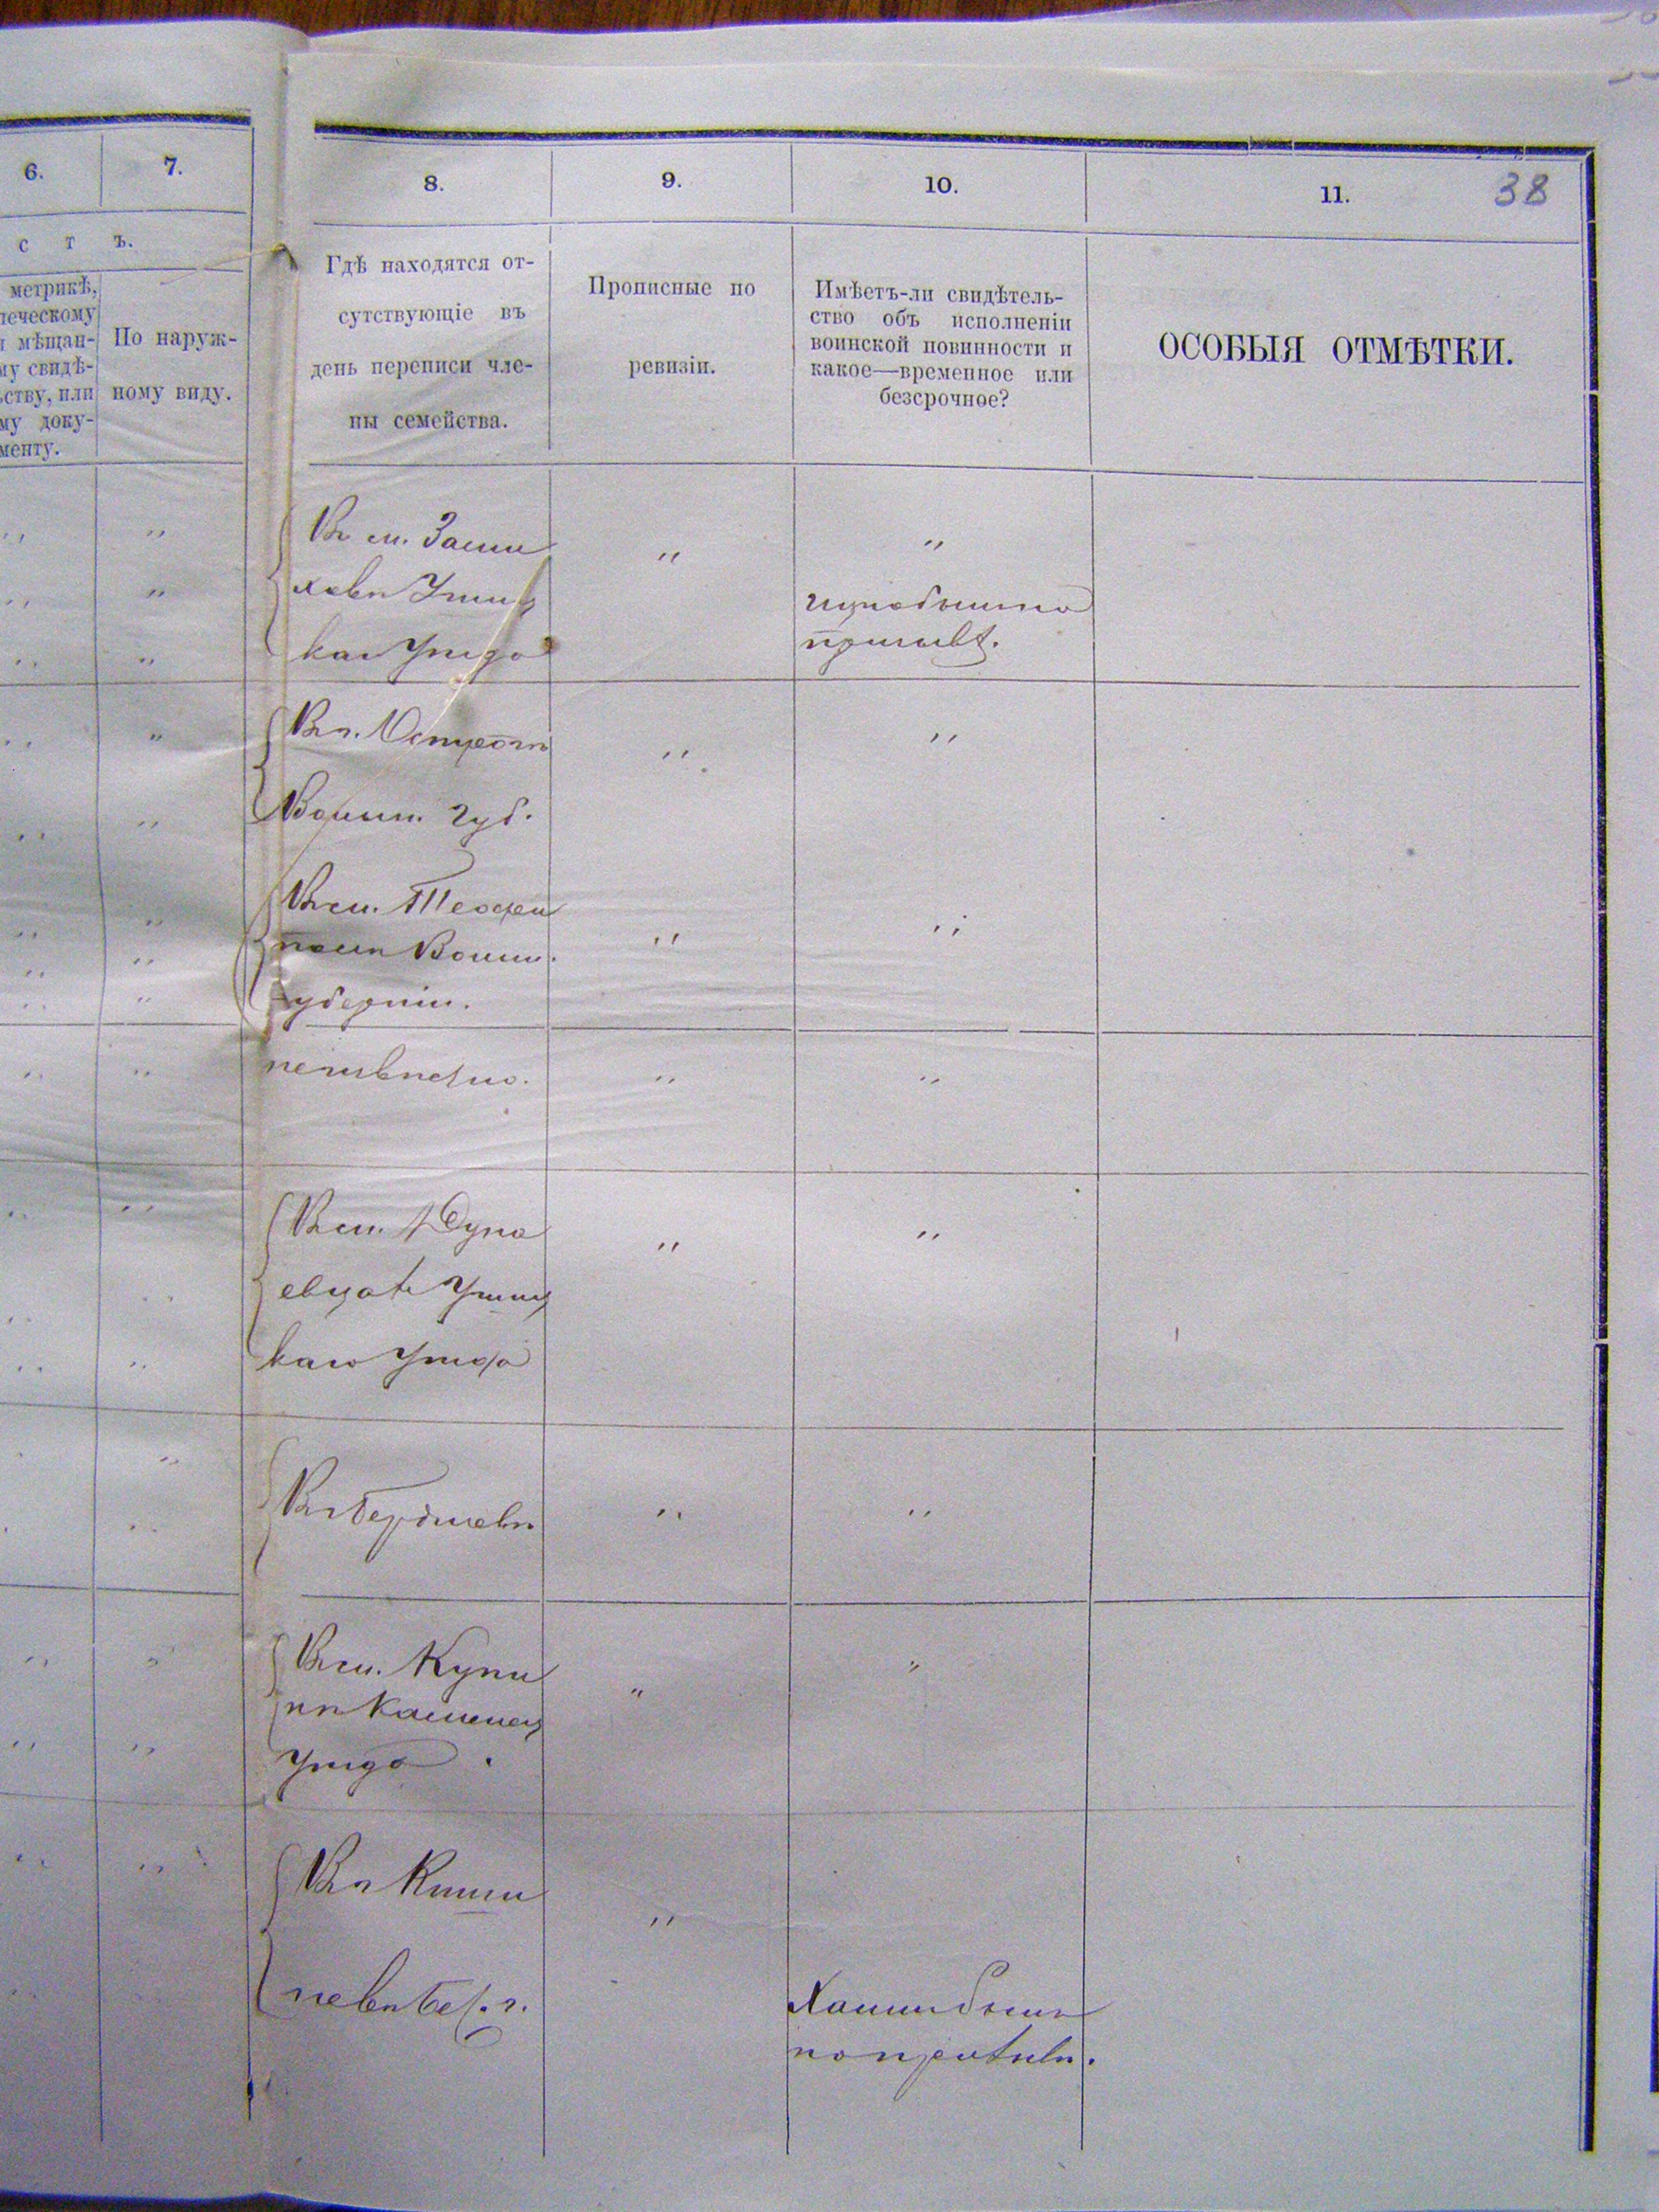 6.
7.
8.
9.
10.
11.
38
с т ъ.
метрикѣ,
мѣщан-
му свидѣ-
ству, или
му доку-
менту.
По наруж-
ному виду.
Гдѣ находятся от-
сутствующіе въ
день переписи чле-
ны семейства.
Прописные по
ревизіи.
Имѣетъ-ли свидѣтель-
ство объ исполненіи
воинской повинности и
какое—временное или
безсрочное?
ОСОБЫЯ ОТМѢТКИ.
Въ м.
ковѣ Ушиц
каго уѣзда
Въ г. Острогѣ
Волын. губ.
Въ м. Теофи
полѣ Волын.
губерніи.
неизвѣстно.
Въ м. Дуна
евцахъ Ушиц
каго уѣзда
Въ г. Бердичевѣ
Въ м. Купи
нѣ Каменец
уѣзда
Въ г. Киши
невѣ Бес. г.